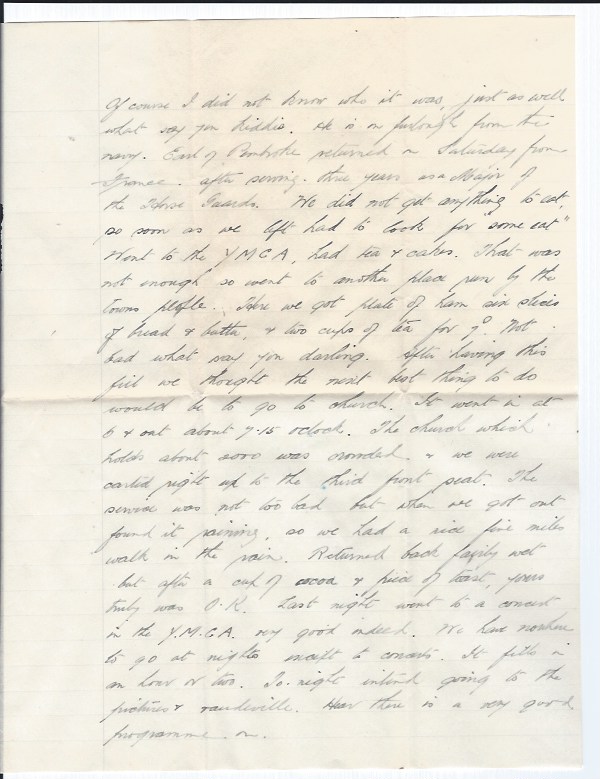 Of course I did not know who it was, just as well
what say you Kiddie. He is on furlough from the
navy. Earl of Pembroke returned on Saturday from
France. after serving three years as a Major of
the Horse Guards. We did not get anything to eat,
so soon as we left had to look for "some eat"
Went to the Y.M.C.A, had tea & cakes. That was
not enough so went to another place run by the
towns people. Here we got plate of ham six slices
of bread & butter, & two cups of tea for 9d. Not
bad what say you darling. After having this
fill we thought the next best thing to do
would be to go to church. It went in at
6 & out about 7.15 oclock. The church which
holds about 2000 was crowded. & we were
carted right up to the third front seat. The
service was not too bad but when we got out
found it raining, so we had a nice five miles
walk in the rain. Returned back fairly wet
but after a cup of cocoa & piece of toast, yours
truly was O.K. Last night went to a concert
in the Y.M.C.A. very good indeed. We have nowhere
to go at nights except to concerts. It fills in
an hour or two. To-night intend going to the
pictures & vaudeville. Hear there is a very good
programme on.